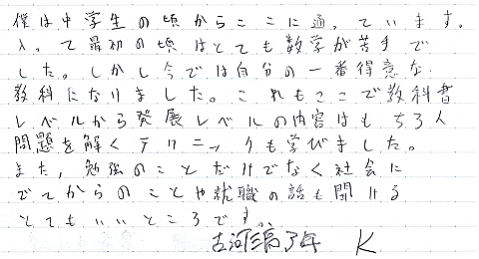 僕は中学生の頃からここに通っています。
入って最初の頃はとても数学が苦手で
した。しかし今では自分の一番得意な
教科になりました。これもここで教科書
レベルから発展レベルの内容はもちろん
問題を解くテクニックも学びました。
また,勉強のことだけでなく社会に
でてからのことや就職の話も聞ける
とてもいいところです。
古河三高2年 K